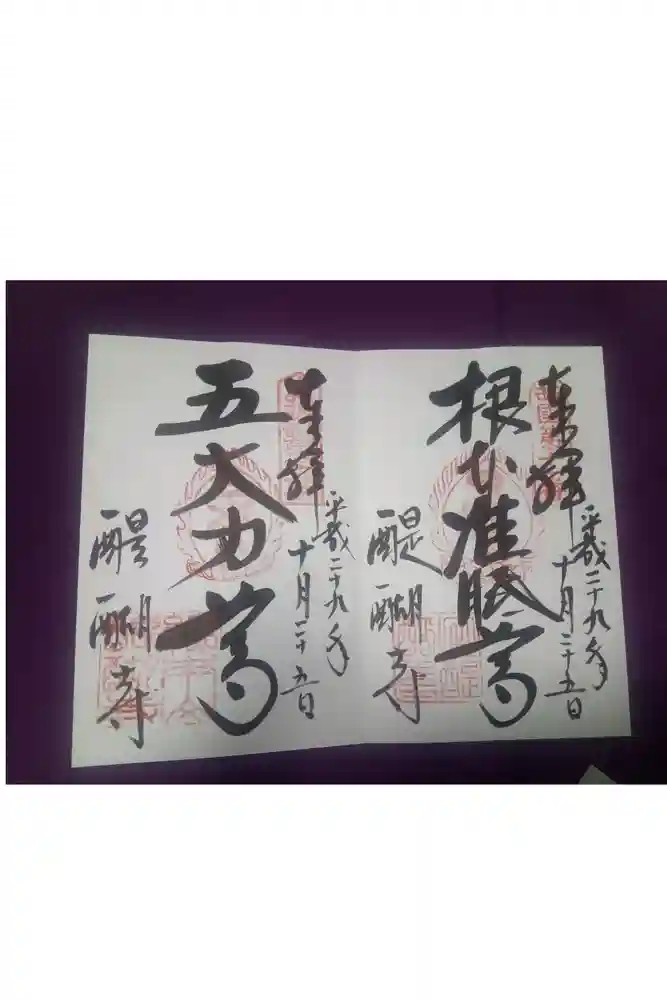 奉拝
平成二十九年
十月二十五日
根本准胝尊
醍醐寺
奉拝
平成二十九年
十月二十五日
五大力尊
醍醐寺